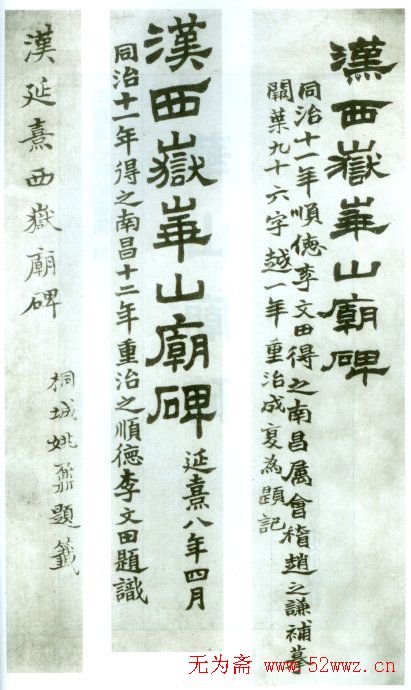 漢西嶽崋山廟碑
同治十一年順德李文田得之南昌属會稽趙之謙補摹
闕葉九十六字越一年重治成為題記
漢西嶽崋山廟碑
延熹八年四月
同治十一年得之南昌十二年重治之順德李文田題識
漢延熹西嶽廟碑
桐城姚鼐題籤
无为斋 www.52wwz.cn